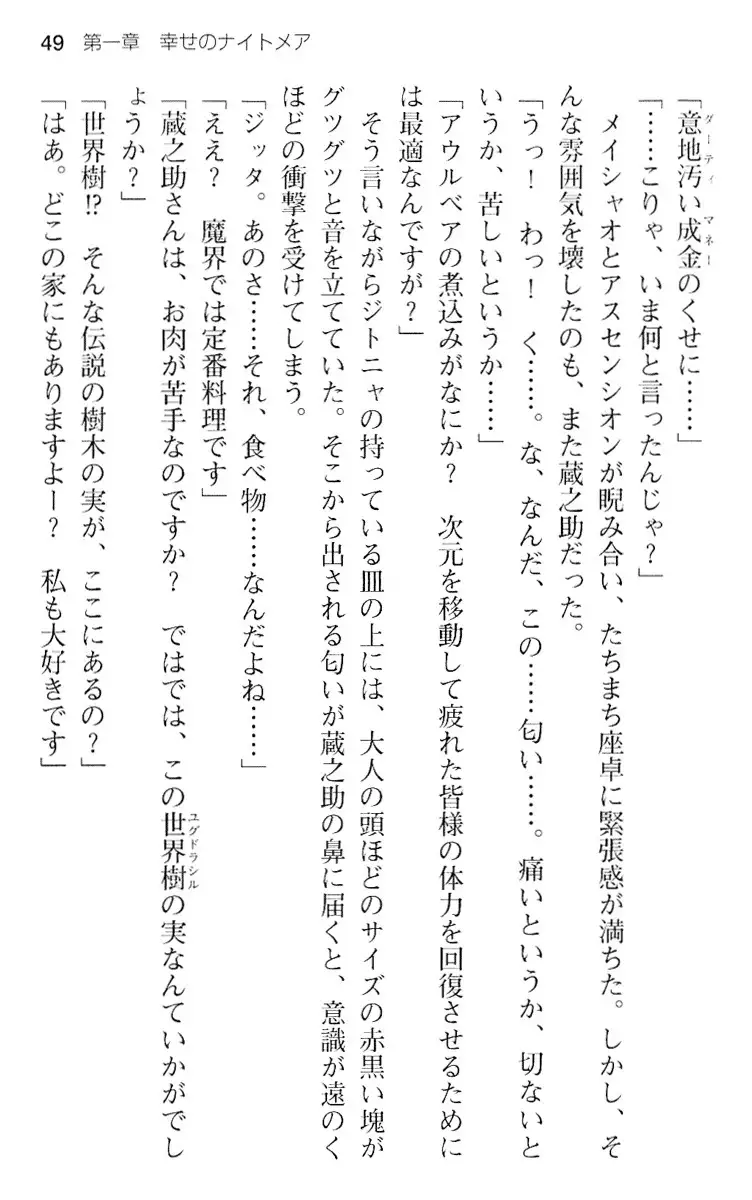 49 第一章 幸せのナイトメア
「意地汚い成金のくせに……」
ダーティ マネー
「……こりゃ、いま何と言ったんじゃ？」
　メイシャオとアスセンシオンが睨み合い、たちまち座卓に緊張感が満ちた。しかし、そ
んな雰囲気を壊したのも、また蔵之助だった。
「うっ！　わっ！　く……。な、なんだ、この……匂い……。痛いというか、切ないと
いうか、苦しいというか……」
「アウルベアの煮込みがなにか？　次元を移動して疲れた皆様の体力を回復させるために
は最適なんですが？」
　そう言いながらジトニャの持っている皿の上には、大人の頭ほどのサイズの赤黒い塊が
グツグツと音を立てていた。そこから出される匂いが蔵之助の鼻に届くと、意識が遠のく
ほどの衝撃を受けてしまう。
「ジッタ。あのさ……それ、食べ物……なんだよね……」
「ええ？　魔界では定番料理です」
「蔵之助さんは、お肉が苦手なのですか？　ではでは、この世界樹の実なんていかがでし
ユグドラシル
ょうか？」
「世界樹⁉　そんな伝説の樹木の実が、ここにあるの？」
「はあ。どこの家にもありますよー？　私も大好きです」